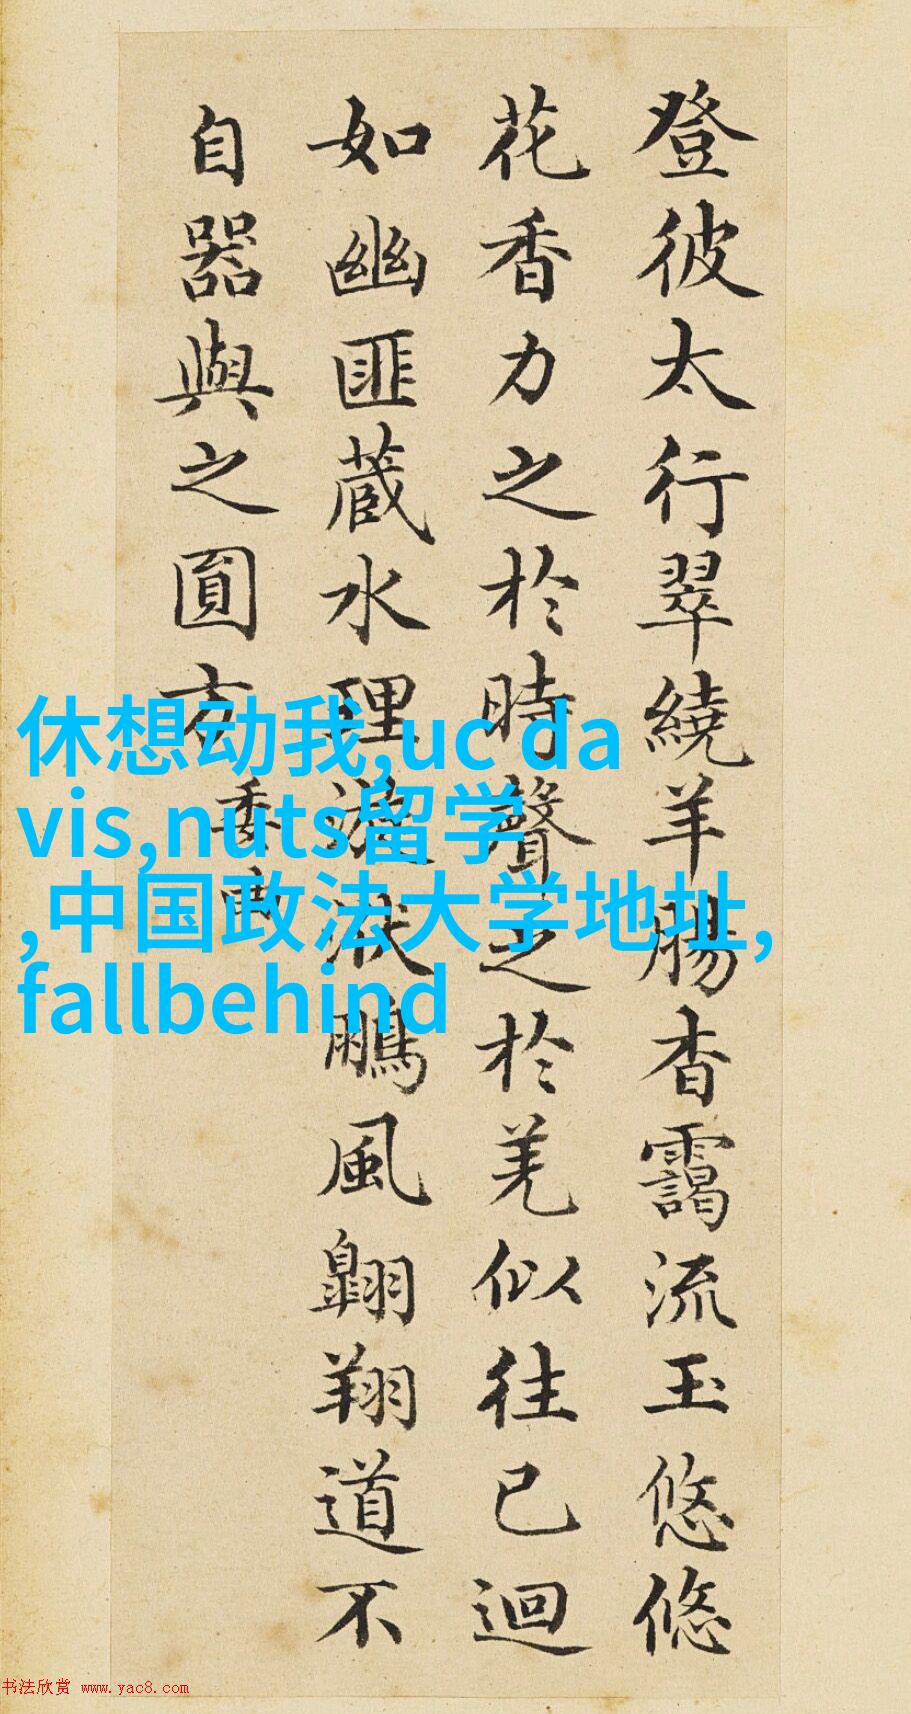 登彼太行翠繞羊腸杳靄流玉悠悠
花香力之於時聲之於羌似往已迴
如幽匪蔵水理漩洑鵬風翺翔道不
自器與之圓方 委曲
休想动我,uc da
vis,nuts留学
,中国政法大学地址,
fallbehind
书法欣赏 www.yac8.com